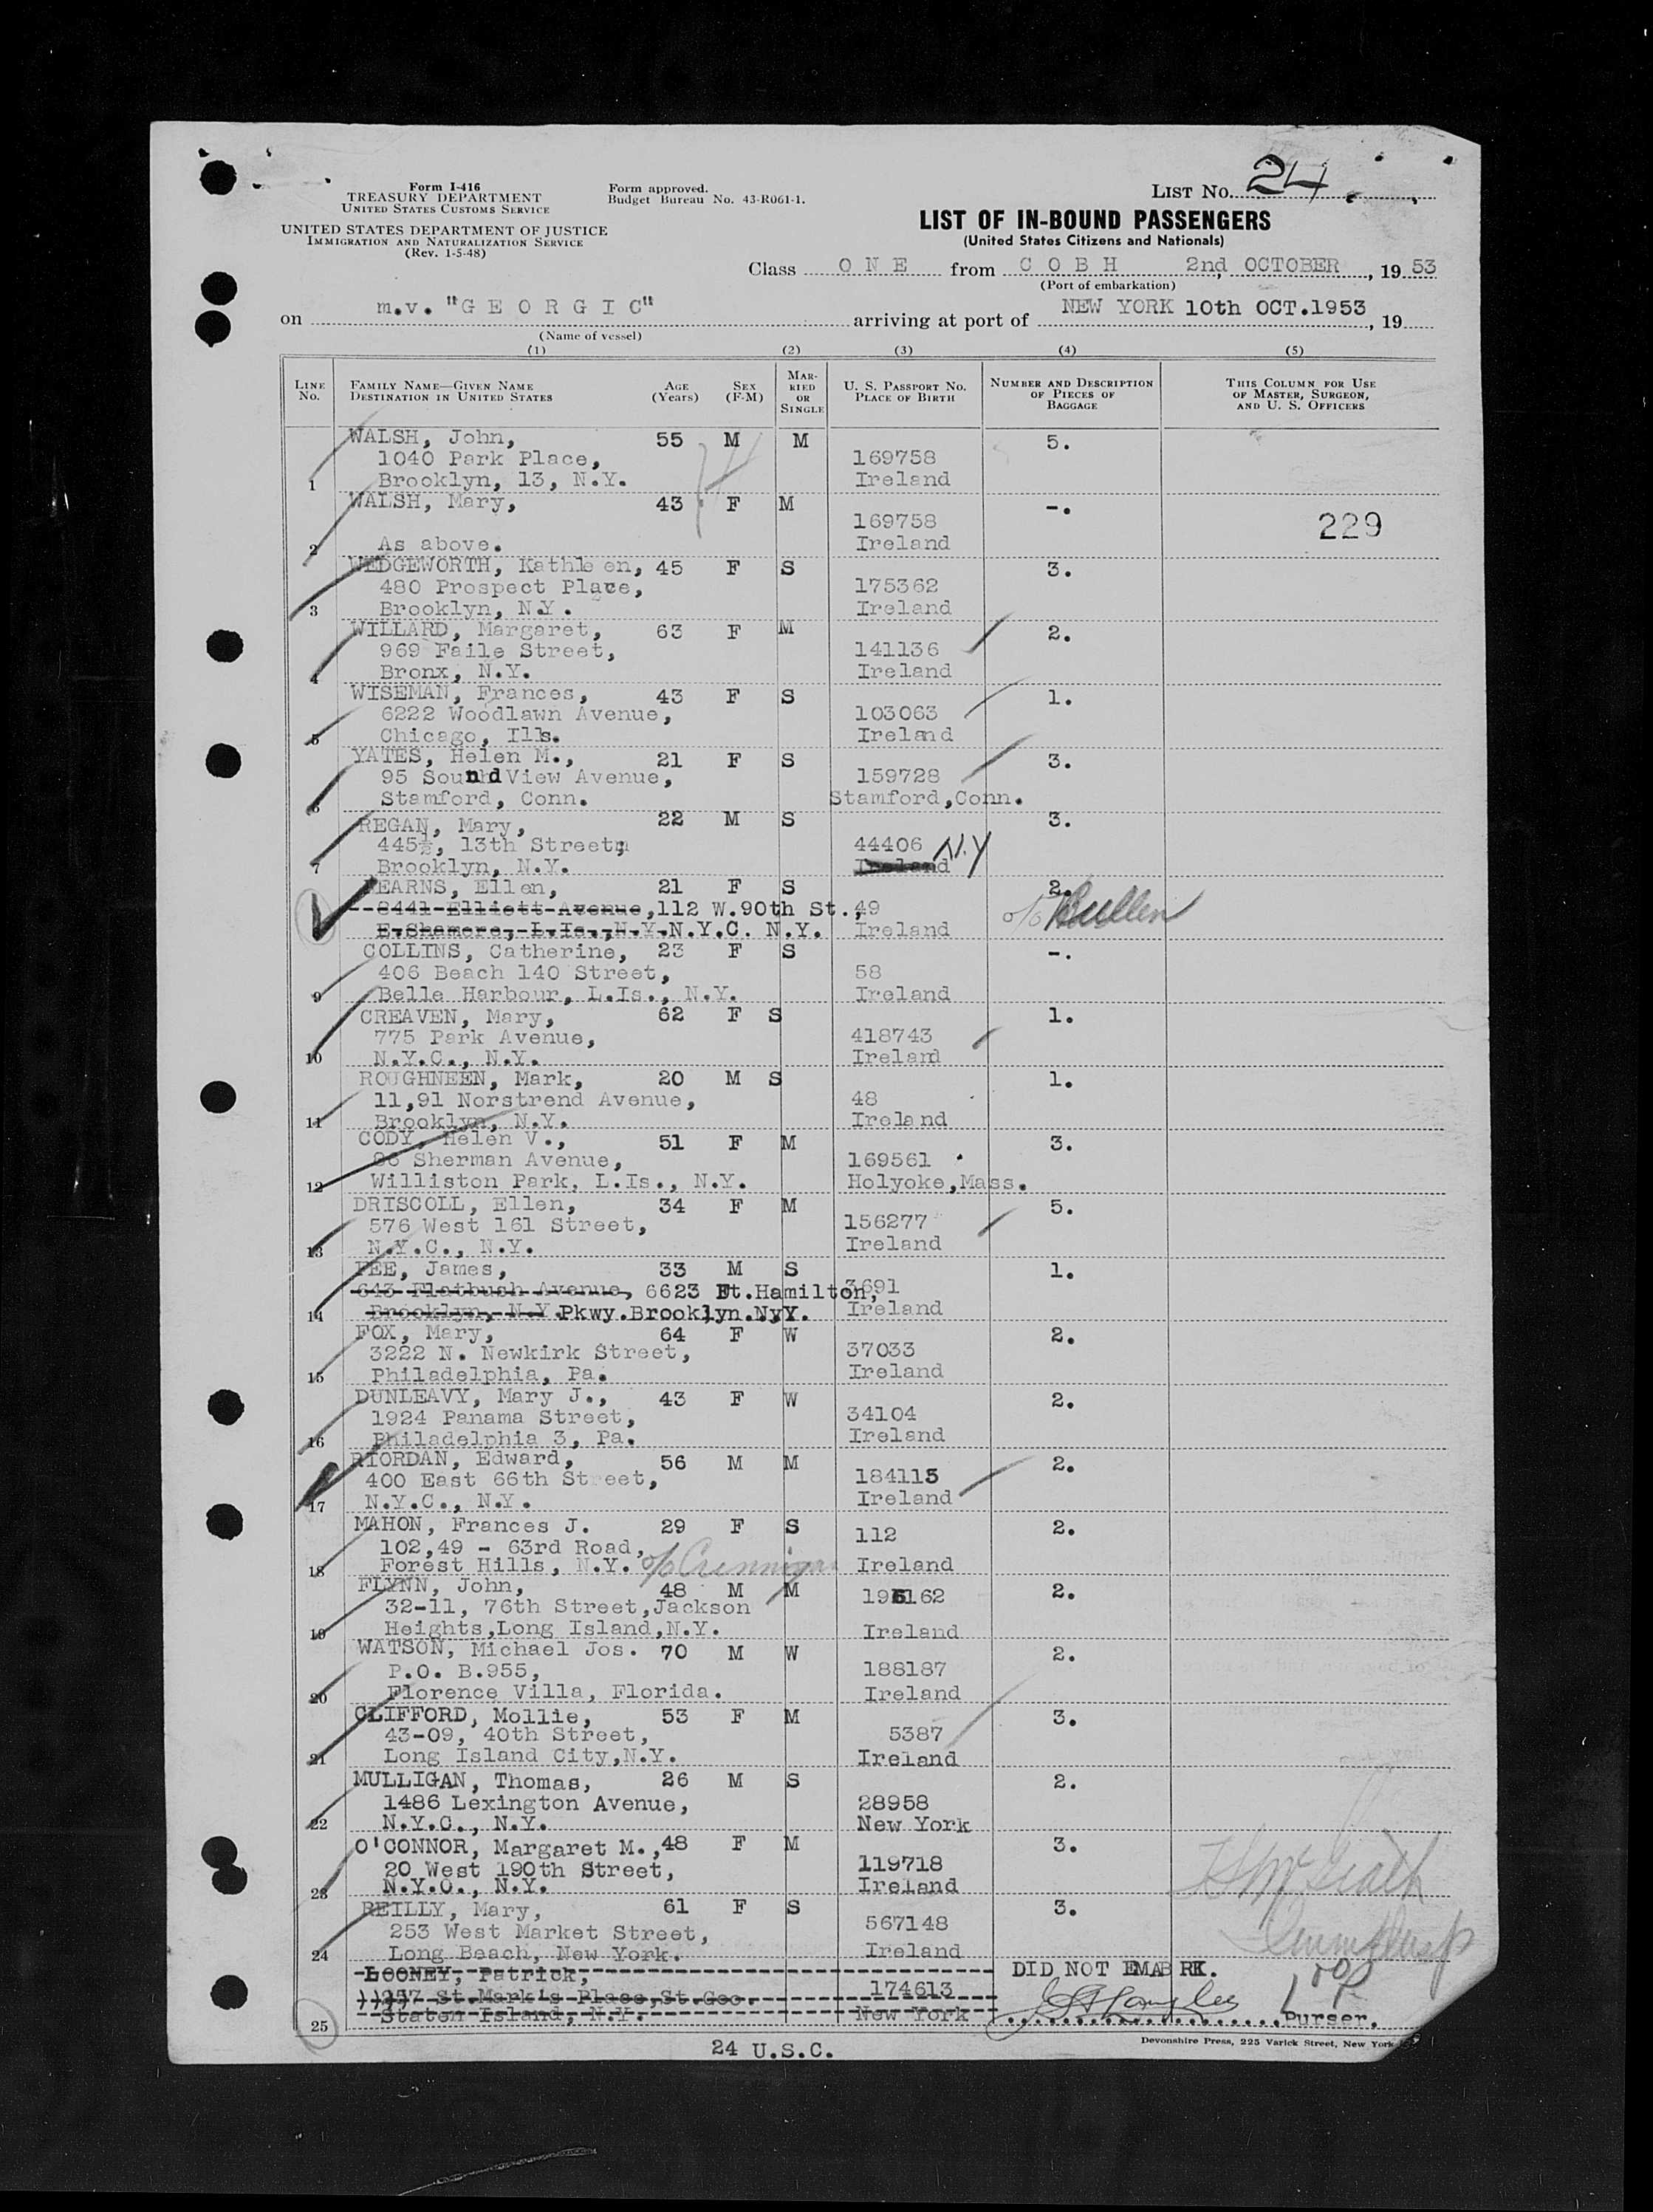 LIST No. 24
Form I-416
TREASURY DEPARTMENT
UNITED STATES CUSTOMS SERVICE
Form approved.
Budget Bureau No. 43-R061-1.
UNITED STATES DEPARTMENT OF JUSTICE
IMMIGRATION AND NATURALIZATION SERVICE
(Rev. 1-5-48)
LIST OF IN-BOUND PASSENGERS
(United States Citizens and Nationals)
Class ONE from COBH 2nd, OCTOBER, 19 53
(Port of embarkation)
on m.v. "GEORGIC" arriving at port of NEW YORK 10th OCT.1953, 19
(Name of vessel)
(1) (2) (3) (4) (5)
LINE No. FAMILY NAME—GIVEN NAME DESTINATION IN UNITED STATES AGE (Years) SEX (F-M) MARRIED OR SINGLE U. S. PASSPORT NO. PLACE OF BIRTH NUMBER AND DESCRIPTION OF PIECES OF BAGGAGE THIS COLUMN FOR USE OF MASTER, SURGEON, AND U. S. OFFICERS
WALSH, John, 55 M M 5.
1040 Park Place, 169758
1 Brooklyn, 13, N.Y. Ireland
WALSH, Mary, 43 F M -.
169758 229
2 As above. Ireland
WEDGEWORTH, Kathleen, 45 F S 3.
480 Prospect Place, 175362
3 Brooklyn, N.Y. Ireland
WILLARD, Margaret, 63 F M 2.
969 Faile Street, 141136
4 Bronx, N.Y. Ireland
WISEMAN, Frances, 43 F S 1.
6222 Woodlawn Avenue, 103063
5 Chicago, Ills. Ireland
YATES, Helen M., 21 F S 3.
95 Sound View Avenue, 159728
6 Stamford, Conn. Stamford,Conn.
REGAN, Mary, 22 M S 3.
445½, 13th Street, 44406 N.Y
7 Brooklyn, N.Y. Ireland
KEARNS, Ellen, 21 F S 2.
8441 Elliott Avenue,112 W.90th St., 49 c/o Cullen
E.Shamore, L.Is., N.Y. N.Y.C. N.Y. Ireland
COLLINS, Catherine, 23 F S -.
406 Beach 140 Street, 58
9 Belle Harbour, L.Is., N.Y. Ireland
CREAVEN, Mary, 62 F S 1.
775 Park Avenue, 418743
10 N.Y.C., N.Y. Ireland
ROUGHNEEN, Mark, 20 M S 1.
11,91 Norstrend Avenue, 48
11 Brooklyn, N.Y. Ireland
CODY, Helen V., 51 F M 3.
96 Sherman Avenue, 169561
12 Williston Park, L.Is., N.Y. Holyoke,Mass.
DRISCOLL, Ellen, 34 F M 5.
576 West 161 Street, 156277
13 N.Y.C., N.Y. Ireland
FEE, James, 33 M S 1.
643 Flatbush Avenue, 6623 Ft.Hamilton, 3691
14 Brooklyn, N.Y. Pkwy.Brooklyn.NyY. Ireland
FOX, Mary, 64 F W 2.
3222 N. Newkirk Street, 37033
15 Philadelphia, Pa. Ireland
DUNLEAVY, Mary J., 43 F W 2.
1924 Panama Street, 34104
16 Philadelphia 3, Pa. Ireland
RIORDAN, Edward, 56 M M 2.
400 East 66th Street, 184115
17 N.Y.C., N.Y. Ireland
MAHON, Frances J. 29 F S 2.
102,49 - 63rd Road, 112
18 Forest Hills, N.Y. c/o Ireland
FLYNN, John, 48 M M 2.
32-11, 76th Street,Jackson 195162
19 Heights,Long Island,N.Y. Ireland
WATSON, Michael Jos. 70 M W 2.
P.O. B.955, 188187
20 Florence Villa, Florida. Ireland
CLIFFORD, Mollie, 53 F M 3.
43-09, 40th Street, 5387
21 Long Island City,N.Y. Ireland
MULLIGAN, Thomas, 26 M S 2.
1486 Lexington Avenue, 28958
22 N.Y.C., N.Y. New York
O'CONNOR, Margaret M., 48 F M 3.
20 West 190th Street, 119718
23 N.Y.C., N.Y. Ireland
REILLY, Mary, 61 F S 3.
253 West Market Street, 567148
24 Long Beach, New York. Ireland
LOONEY, Patrick, DID NOT EMABRK.
257 St.Mark's Place,St.Geo. 174613
25 Staten Island, N.Y. New York Purser.
24 U.S.C.
Devonshire Press, 225 Varick Street, New York